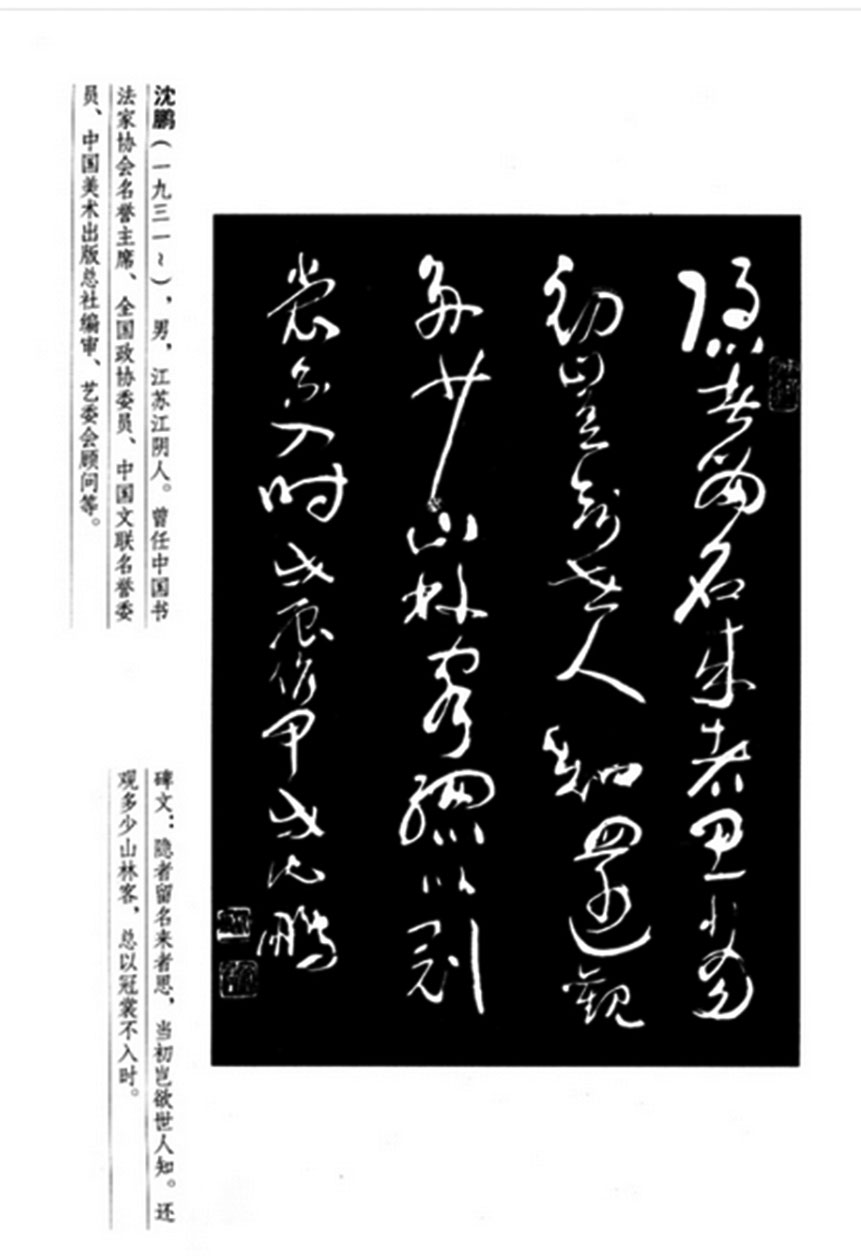 隱者留名來者思當
初豈欲世人知還觀
多少山林客總以冠
裳不入时戊辰作甲戌沈鵬
沈鹏（一九三一～），男，江苏江阴人。曾任中国书
法家协会名誉主席、全国政协委员、中国文联名誉委
员、中国美术出版总社编审、艺委会顾问等。
碑文：隐者留名来者思，当初岂欲世人知。还
观多少山林客，总以冠裳不入时。